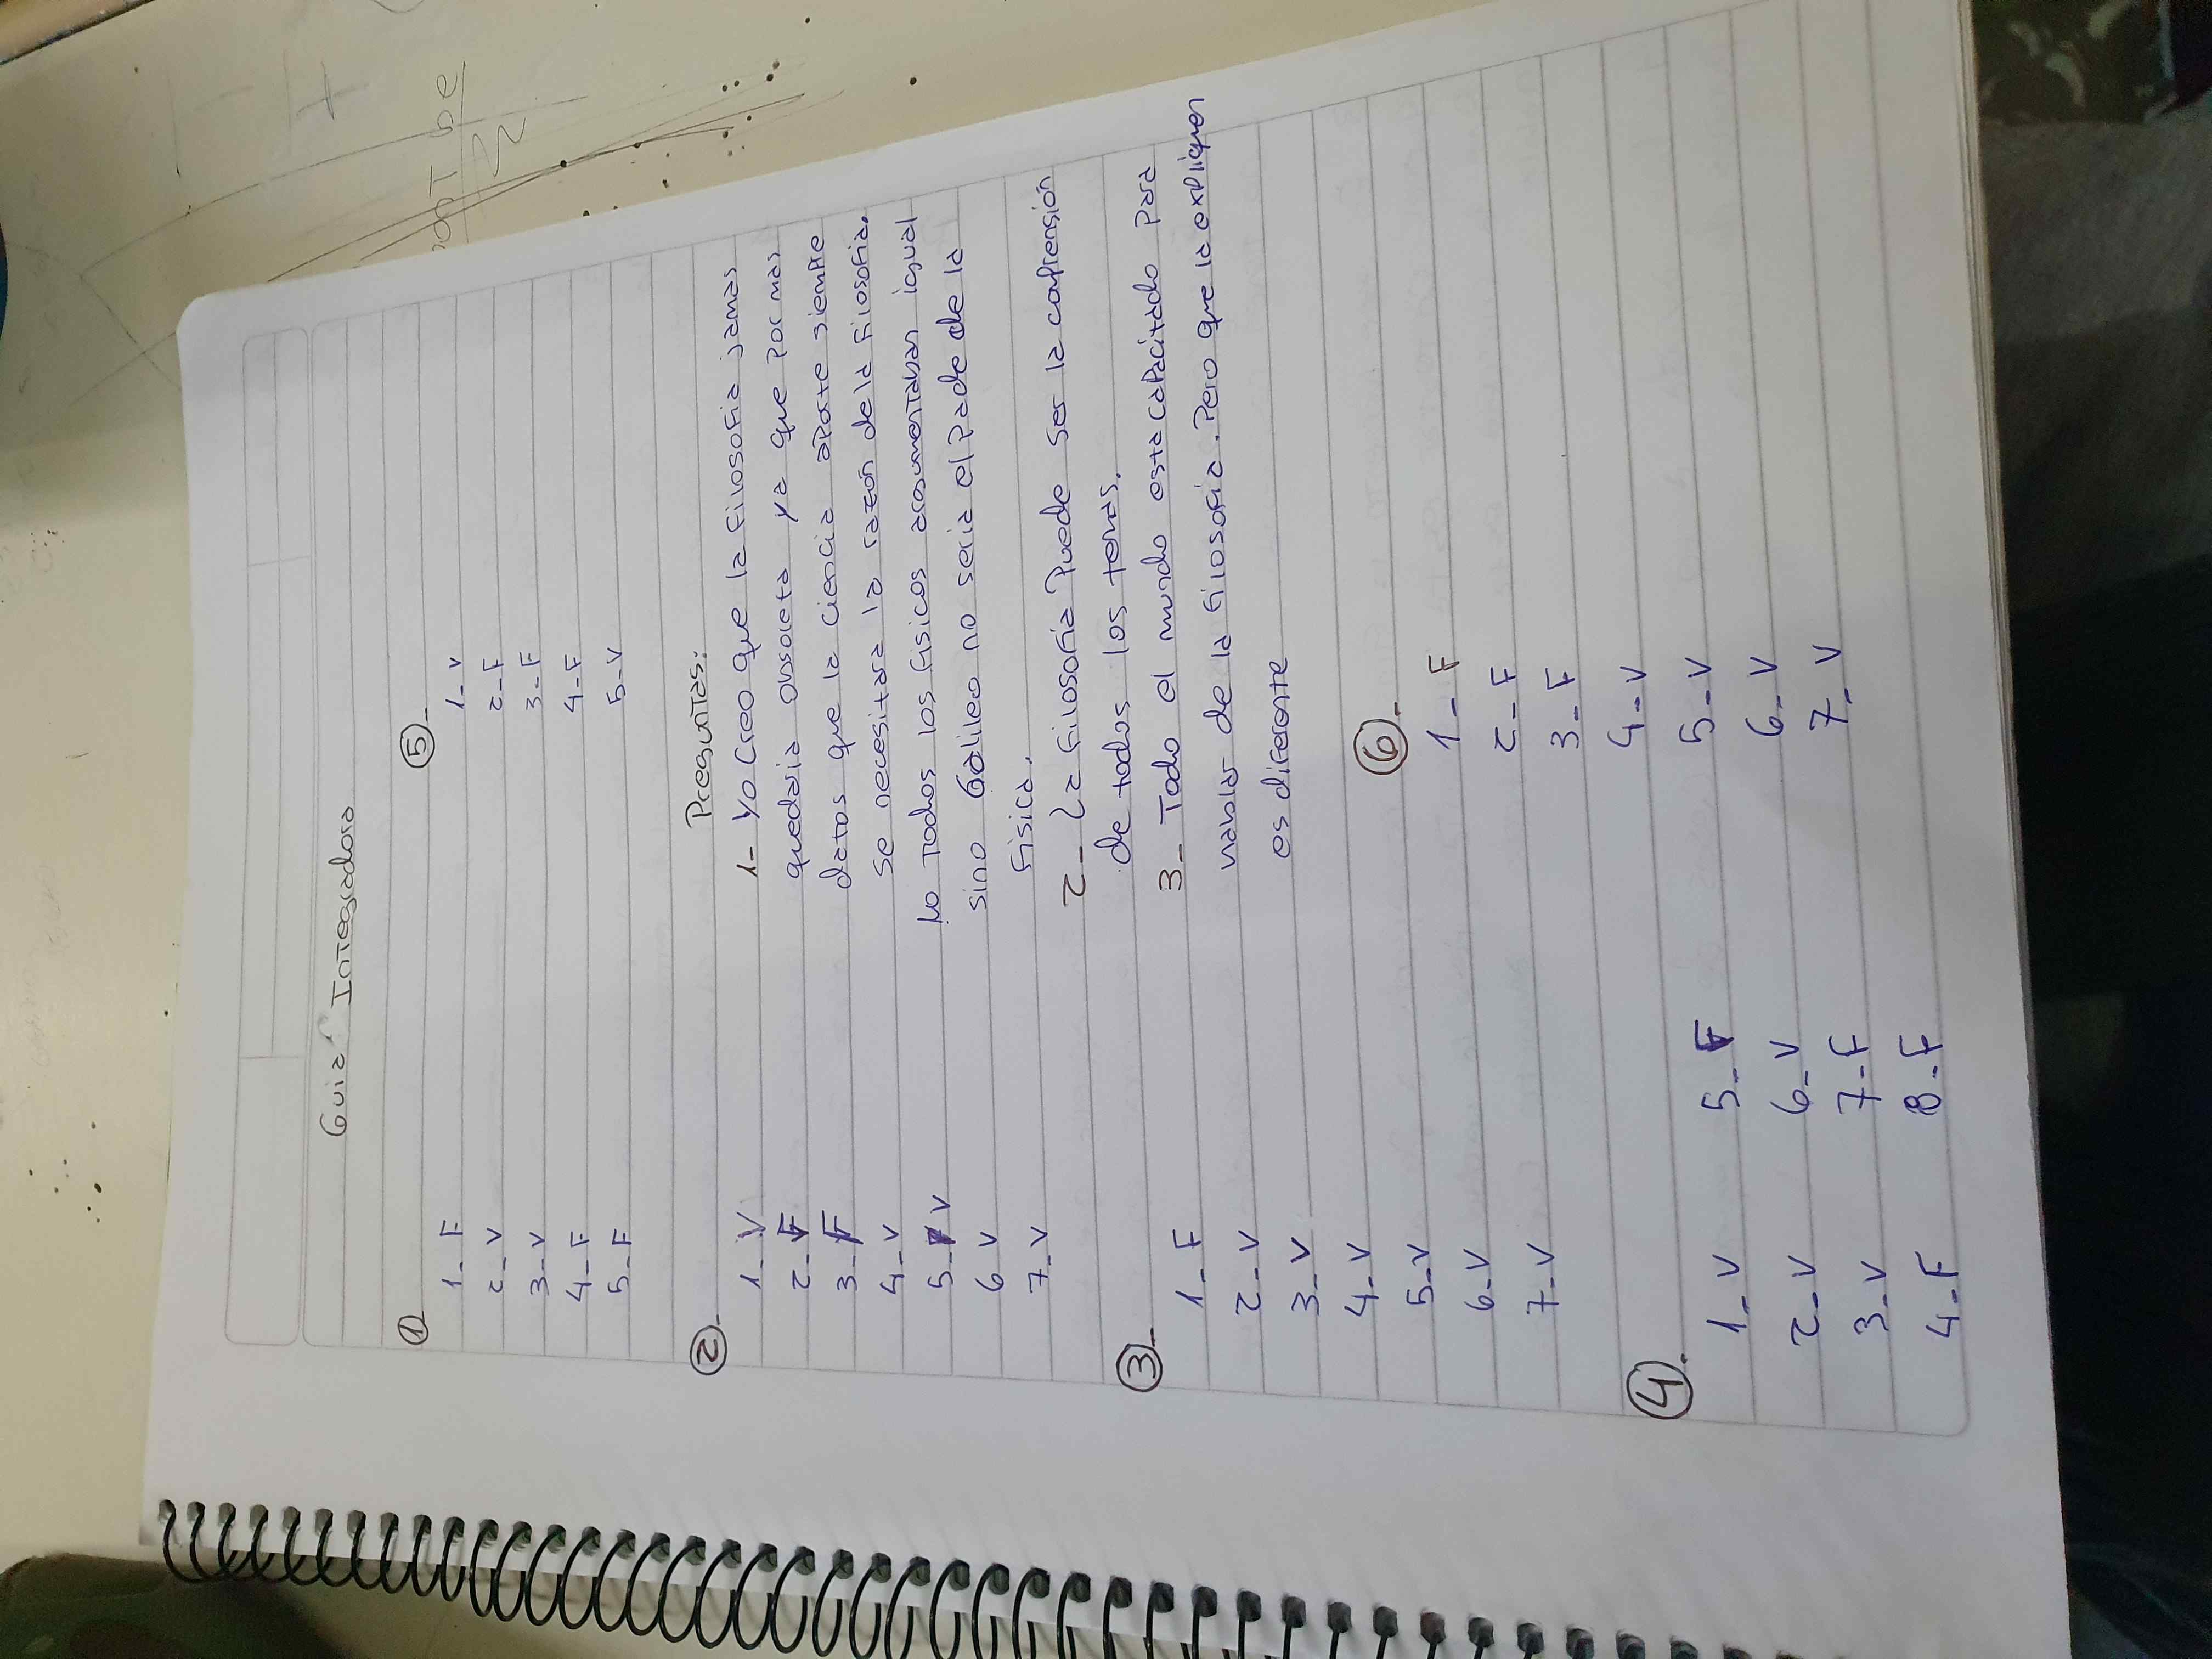 Guia Integradora
①
1_F
2_V
3_V
4_F
5_F
②_
1_V
2_F
3_F
4_V
5_V
6 V
7_V
③_
1_F
2_V
3_V
4_V
5_V
6_V
7_V
④.
1_V
2_V
3_V
4_F
5_F
6_V
7_F
8_F
⑤_
1_V
2_F
3_F
4_F
5_V
Preguntas:
1_ Yo creo que la filosofia jamas
quedaria obsoleta ya que por mas
datos que la ciencia aporte siempre
se necesitara la razón de la filosofia.
No todos los fisicos argumentaban igual
sino Galileo no seria el Padre de la
fisica.
2_ La filosofia Puede ser la comprensión
de todos los temas.
3_ Todo el mundo esta capacitado Para
hablar de la filosofia. Pero que la expliquen
es diferente
⑥_
1_F
2_F
3_F
4_V
5_V
6_V
7_V